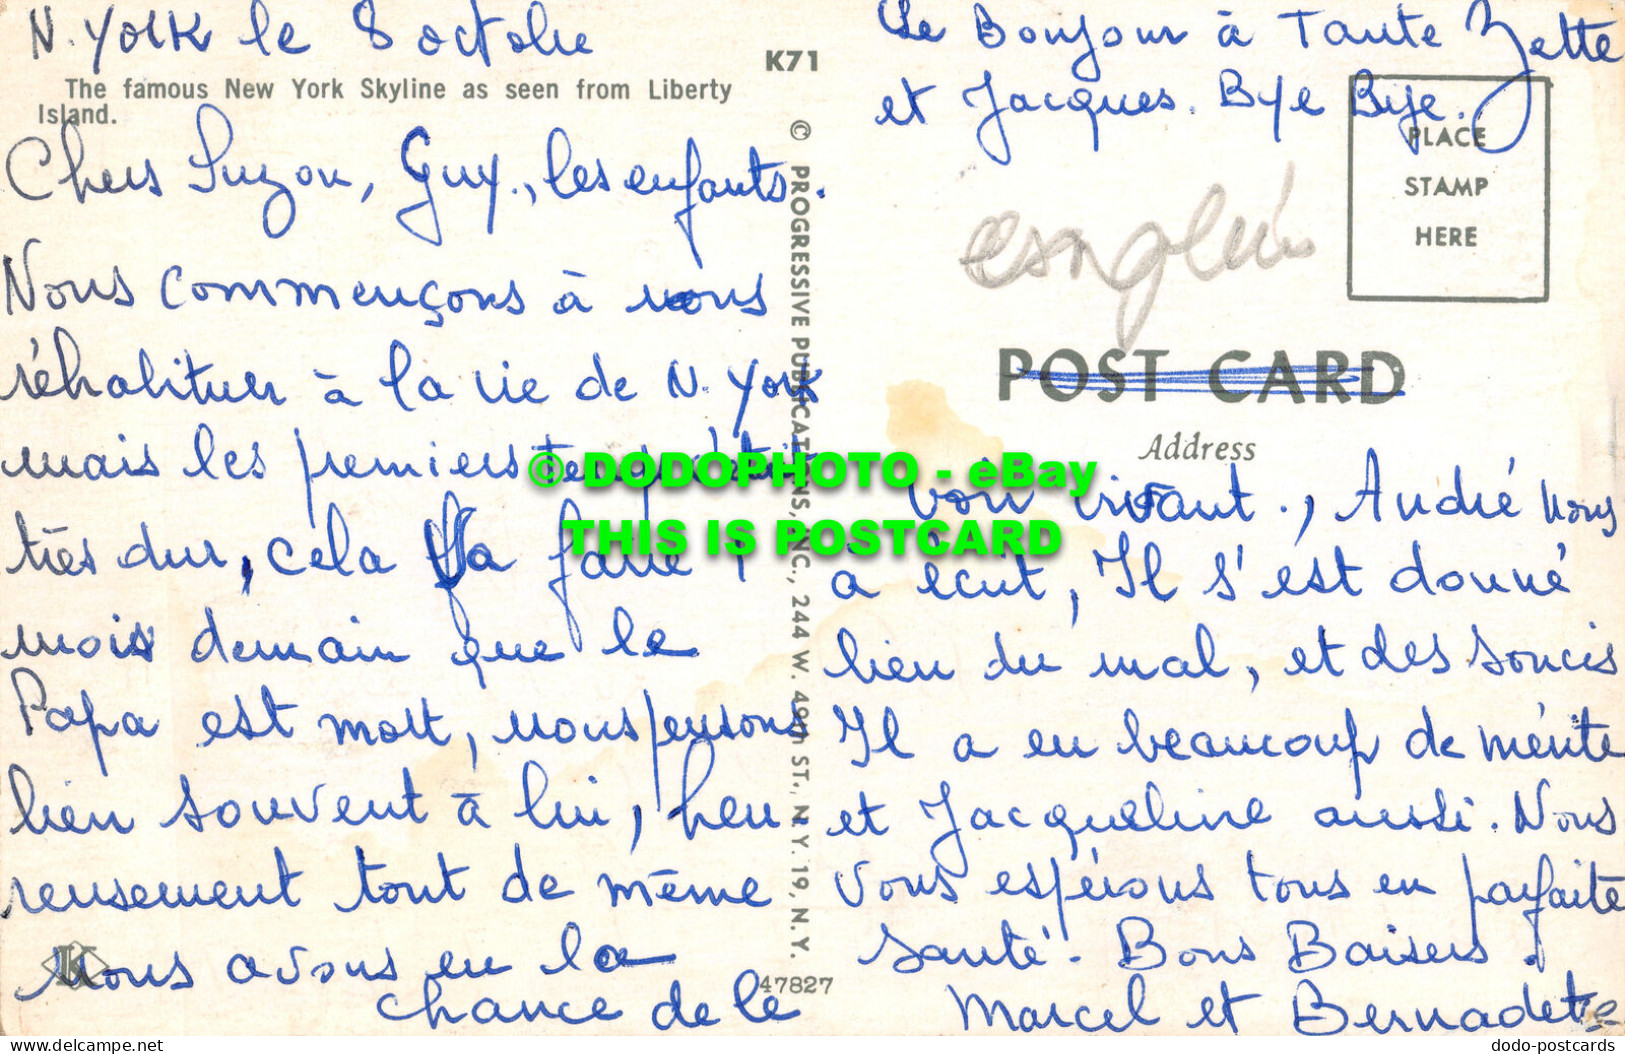 N. York le 8 octobre
K71
The famous New York Skyline as seen from Liberty
Island.
Chers Suzon, Guy., les enfants.
Nous commençons à nous
réhabituer à la vie de N. York
mais les premiers temps c'était
très dur, cela fa faire 1
mois demain que le
Papa est mort, nous pensons
bien souvent à lui, heu
reusement tout de même
Nous avons eu la
chance de le
47827
© PROGRESSIVE PUBLICATIONS, INC., 244 W. 49TH ST., N.Y. 19, N.Y.
K
Le Bonjour à Tante Zette
et Jacques. Bye Bye.
PLACE
STAMP
HERE
POST CARD
Address
voir vivant., André nous
à écrit, Il s'est donné
bien du mal, et des soucis
Il a eu beaucoup de mérite
et Jacqueline aussi. Nous
vous espérons tous en parfaite
santé. Bons Baisers.
Marcel et Bernadette
© DODOPHOTO - eBay
THIS IS POSTCARD
dodo-postcards
delcampe.net